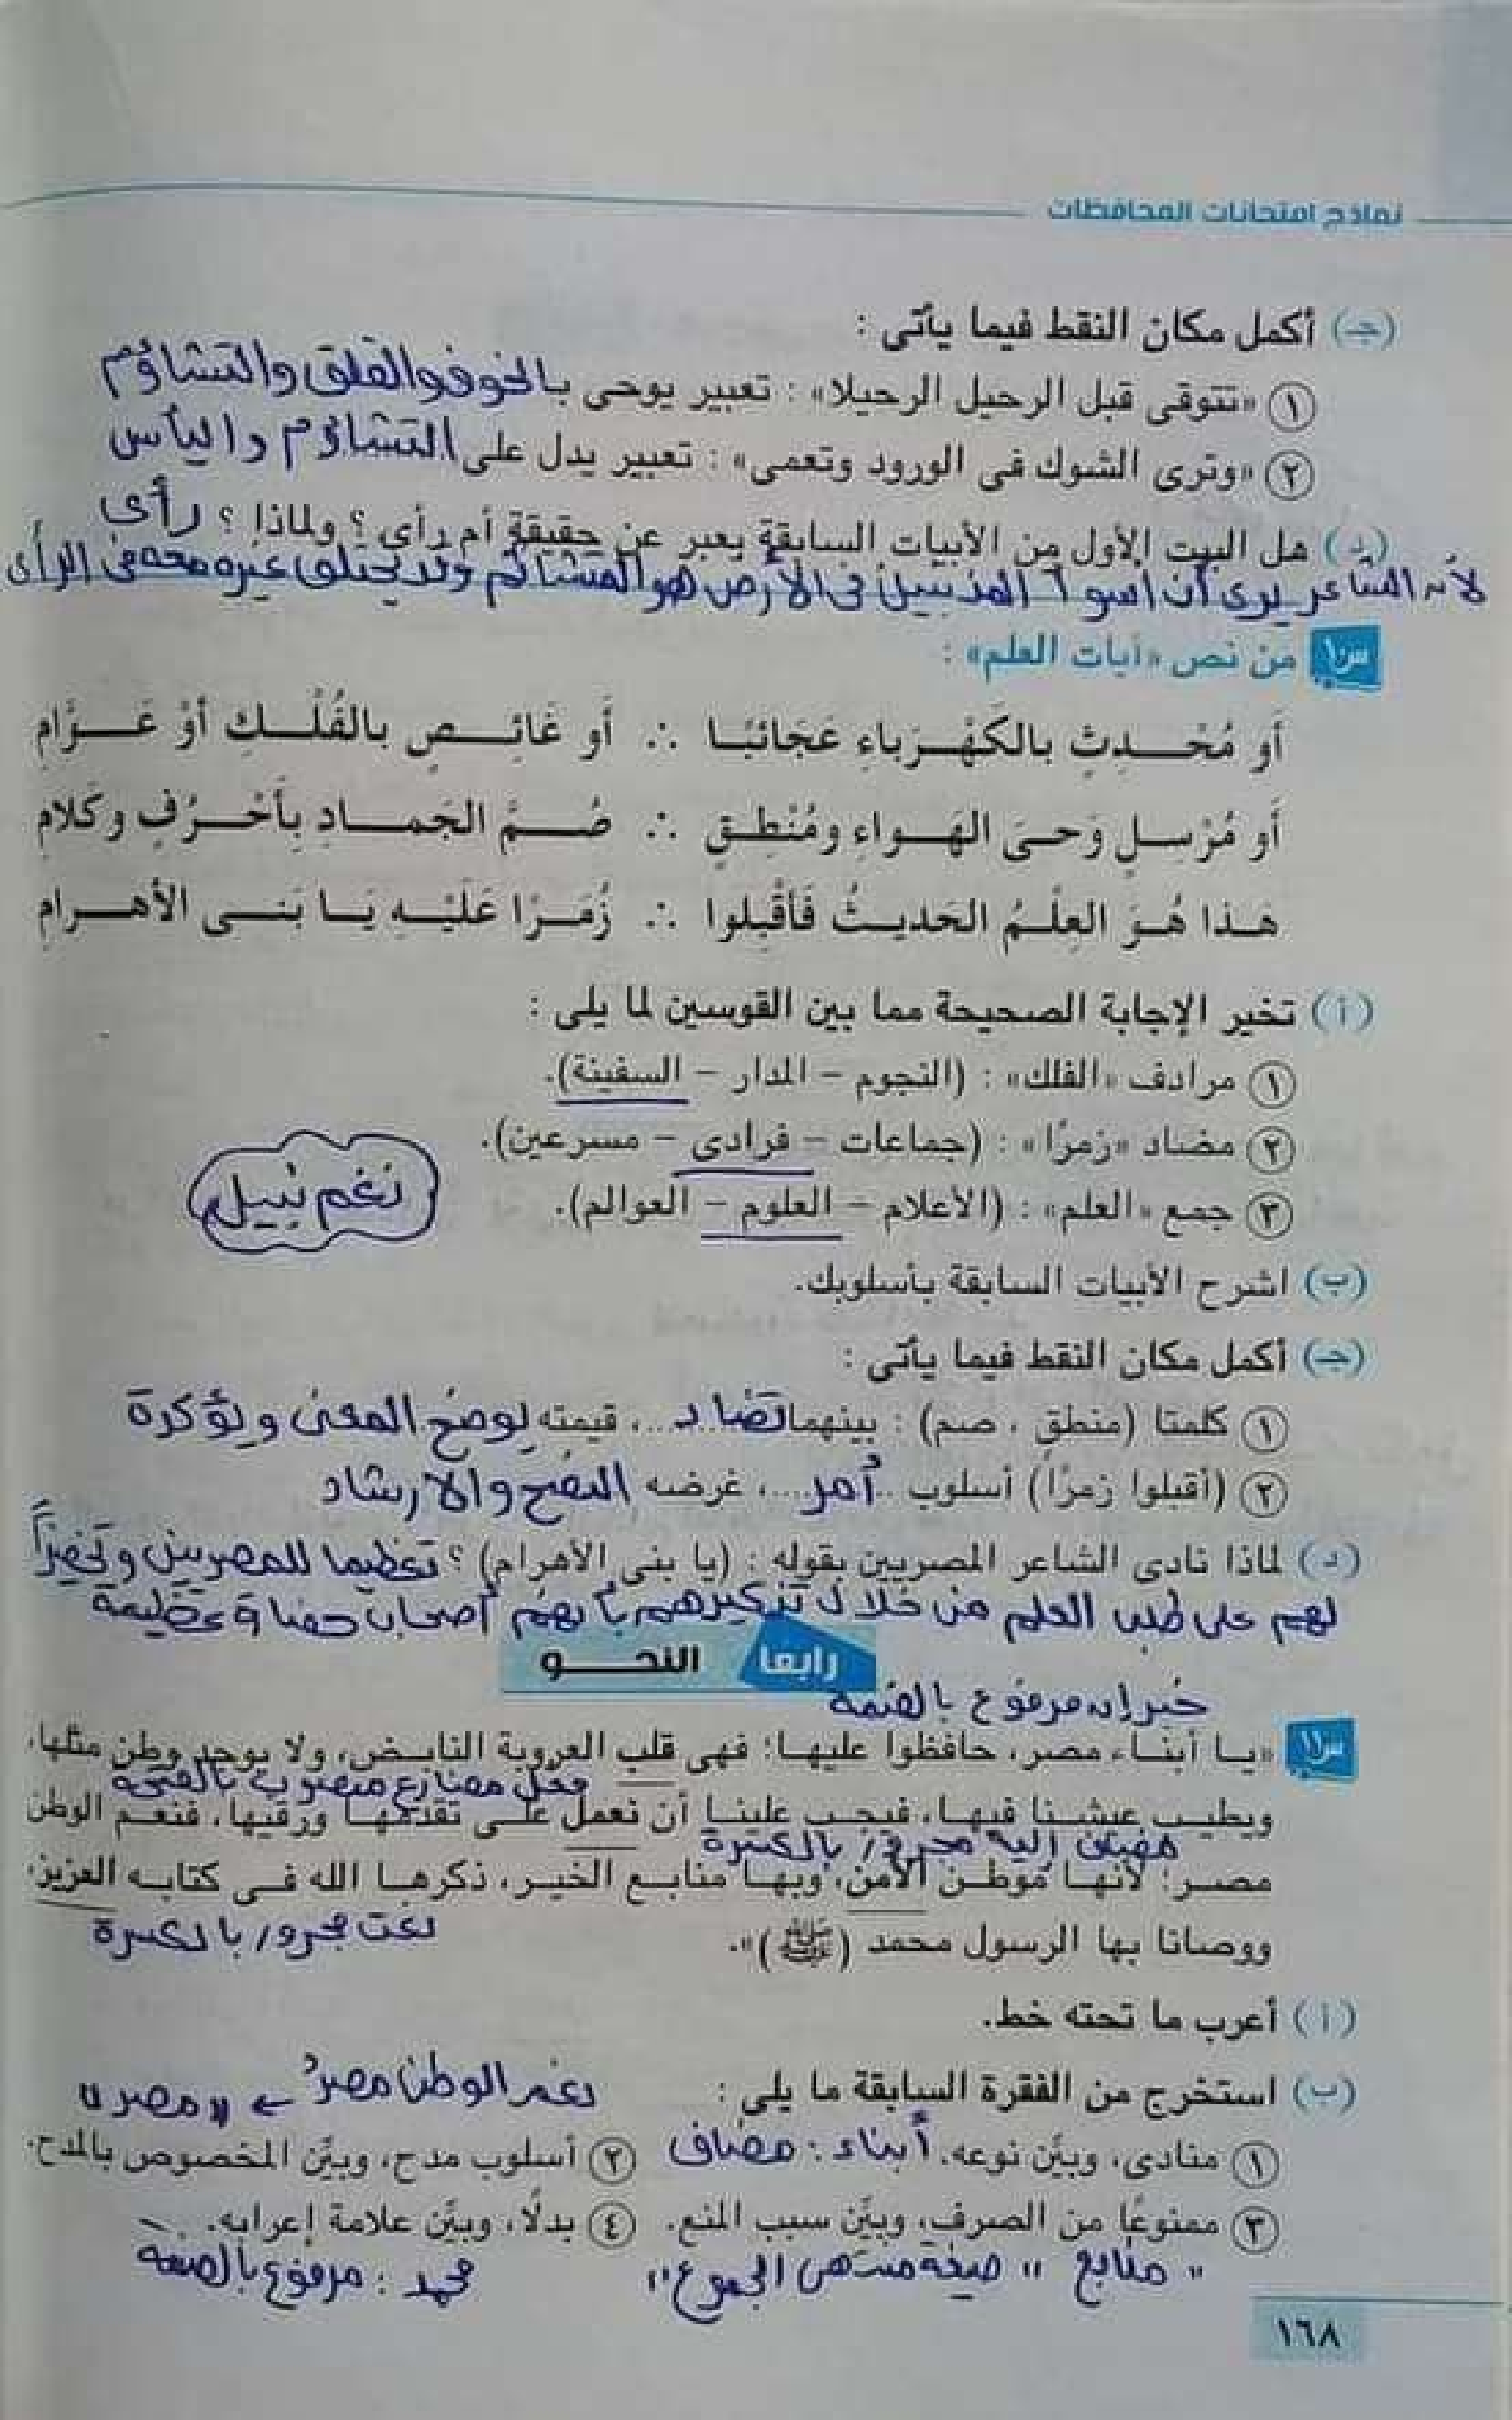 نماذج امتحانات المحافظات
(جـ) أكمل مكان النقط فيما يأتى :
١ «تتوقى قبل الرحيل الرحيلا» : تعبير يوحى بالخوف والقلق والتشاؤم
٢ «وترى الشوك فى الورود وتعمى» : تعبير يدل على التشاؤم واليأس
(د) هل البيت الأول من الأبيات السابقة يعبر عن حقيقة أم رأى ؟ ولماذا ؟ رأى
لأنه الشاعر يرى أن أسوأ المذنبين فى الأرض هو المتشائم وقد يختلف غيره معه فى الرأى
س١٠ من نص «آيات العلم» :
أَو مُحْـدِثٍ بالكَهْرَباءِ عَجَائبًا ∴ أَو غَائِـصٍ بالفُلْـكِ أوْ عَـوَّامِ
أَو مُرْسِلٍ وَحىَ الهَواءِ ومُنْطِقٍ ∴ صُـمَّ الجَمـادِ بِأَحْـرُفٍ وكَلامِ
هَـذا هُـوَ العِلْـمُ الحَديـثُ فَأَقْبِلوا ∴ زُمَـرًا عَلَيْـهِ يَـا بَنـى الأهـرامِ
(أ) تخير الإجابة الصحيحة مما بين القوسين لما يلى :
١ مرادف «الفلك» : (النجوم – المدار – السفينة).
٢ مضاد «زمرًا» : (جماعات – فرادى – مسرعين).
٣ جمع «العلم» : (الأعلام – العلوم – العوالم).
نغم نبيل
(ب) اشرح الأبيات السابقة بأسلوبك.
(جـ) أكمل مكان النقط فيما يأتى :
١ كلمتا (منطقٍ ، صم) : بينهما تضاد....، قيمته يوضح المعنى ويؤكدة
٢ (أقبلوا زمرًا) أسلوب ..أمر....، غرضه النصح والارشاد
(د) لماذا نادى الشاعر المصريين بقوله : (يا بنى الأهرام) ؟ تعظيما للمصريين وتحفيزاً
لهم على طلب العلم من خلال تذكيرهم بأنهم أصحاب حضارة عظيمة
رابعًا النحـــو
خبر مرفوع بالضمة
س١١ «يـا أبنـاء مصر، حافظوا عليهـا؛ فهى قلب العروبة النابـض، ولا يوجد وطن مثلها،
فعل مضارع منصوب بالفتحة
ويطيـب عيشـنا فيهـا، فيجـب علينـا أن نعمل علـى تقدمهـا ورقيها، فنعـم الوطن
مضاف إليه مجرور بالكسرة
مصـر؛ لأنهـا موطـن الأمن، وبهـا منابـع الخيـر، ذكرهـا الله فـى كتابـه العزيز؛
نعت مجرور بالكسرة
ووصانا بها الرسول محمد (ﷺ)».
(أ) أعرب ما تحته خط.
(ب) استخرج من الفقرة السابقة ما يلى :
نعم الوطن مصرُ ← «مصر»
١ منادى، وبيِّن نوعه. أبناء : مضاف
٢ أسلوب مدح، وبيِّن المخصوص بالمدح.
٣ ممنوعًا من الصرف، وبيِّن سبب المنع.
٤ بدلًا، وبيِّن علامة إعرابه.
"منابع" "صيغة منتهى الجموع"
محمد : مرفوع بالضمة
١٦٨